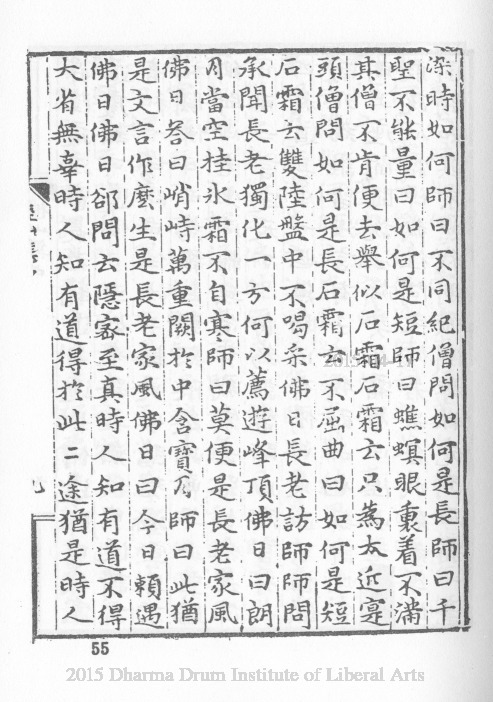 染時如何師曰不同紀僧問如何是長師曰千
聖不能量曰如何是短師曰蟭螟眼裏着不滿
其僧不肯便去舉似石霜石霜云只爲太近寔
頭僧問如何是長石霜云不屈曲曰如何是短
石霜云雙陸盤中不喝采佛日長老訪師師問
承聞長老獨化一方何以薦遊峰頂佛日曰朗
月當空挂氷霜不自寒師曰莫便是長老家風
佛日荅曰峭峙萬重闕於中含寶月師曰此猶
是文言作麼生是長老家風佛日曰今日賴遇
佛日佛日郤問云隱宻至真時人知有道不得
大省無辜時人知有道得於此二途猶是時人
九
55
2015 Dharma Drum Institute of Liberal Arts